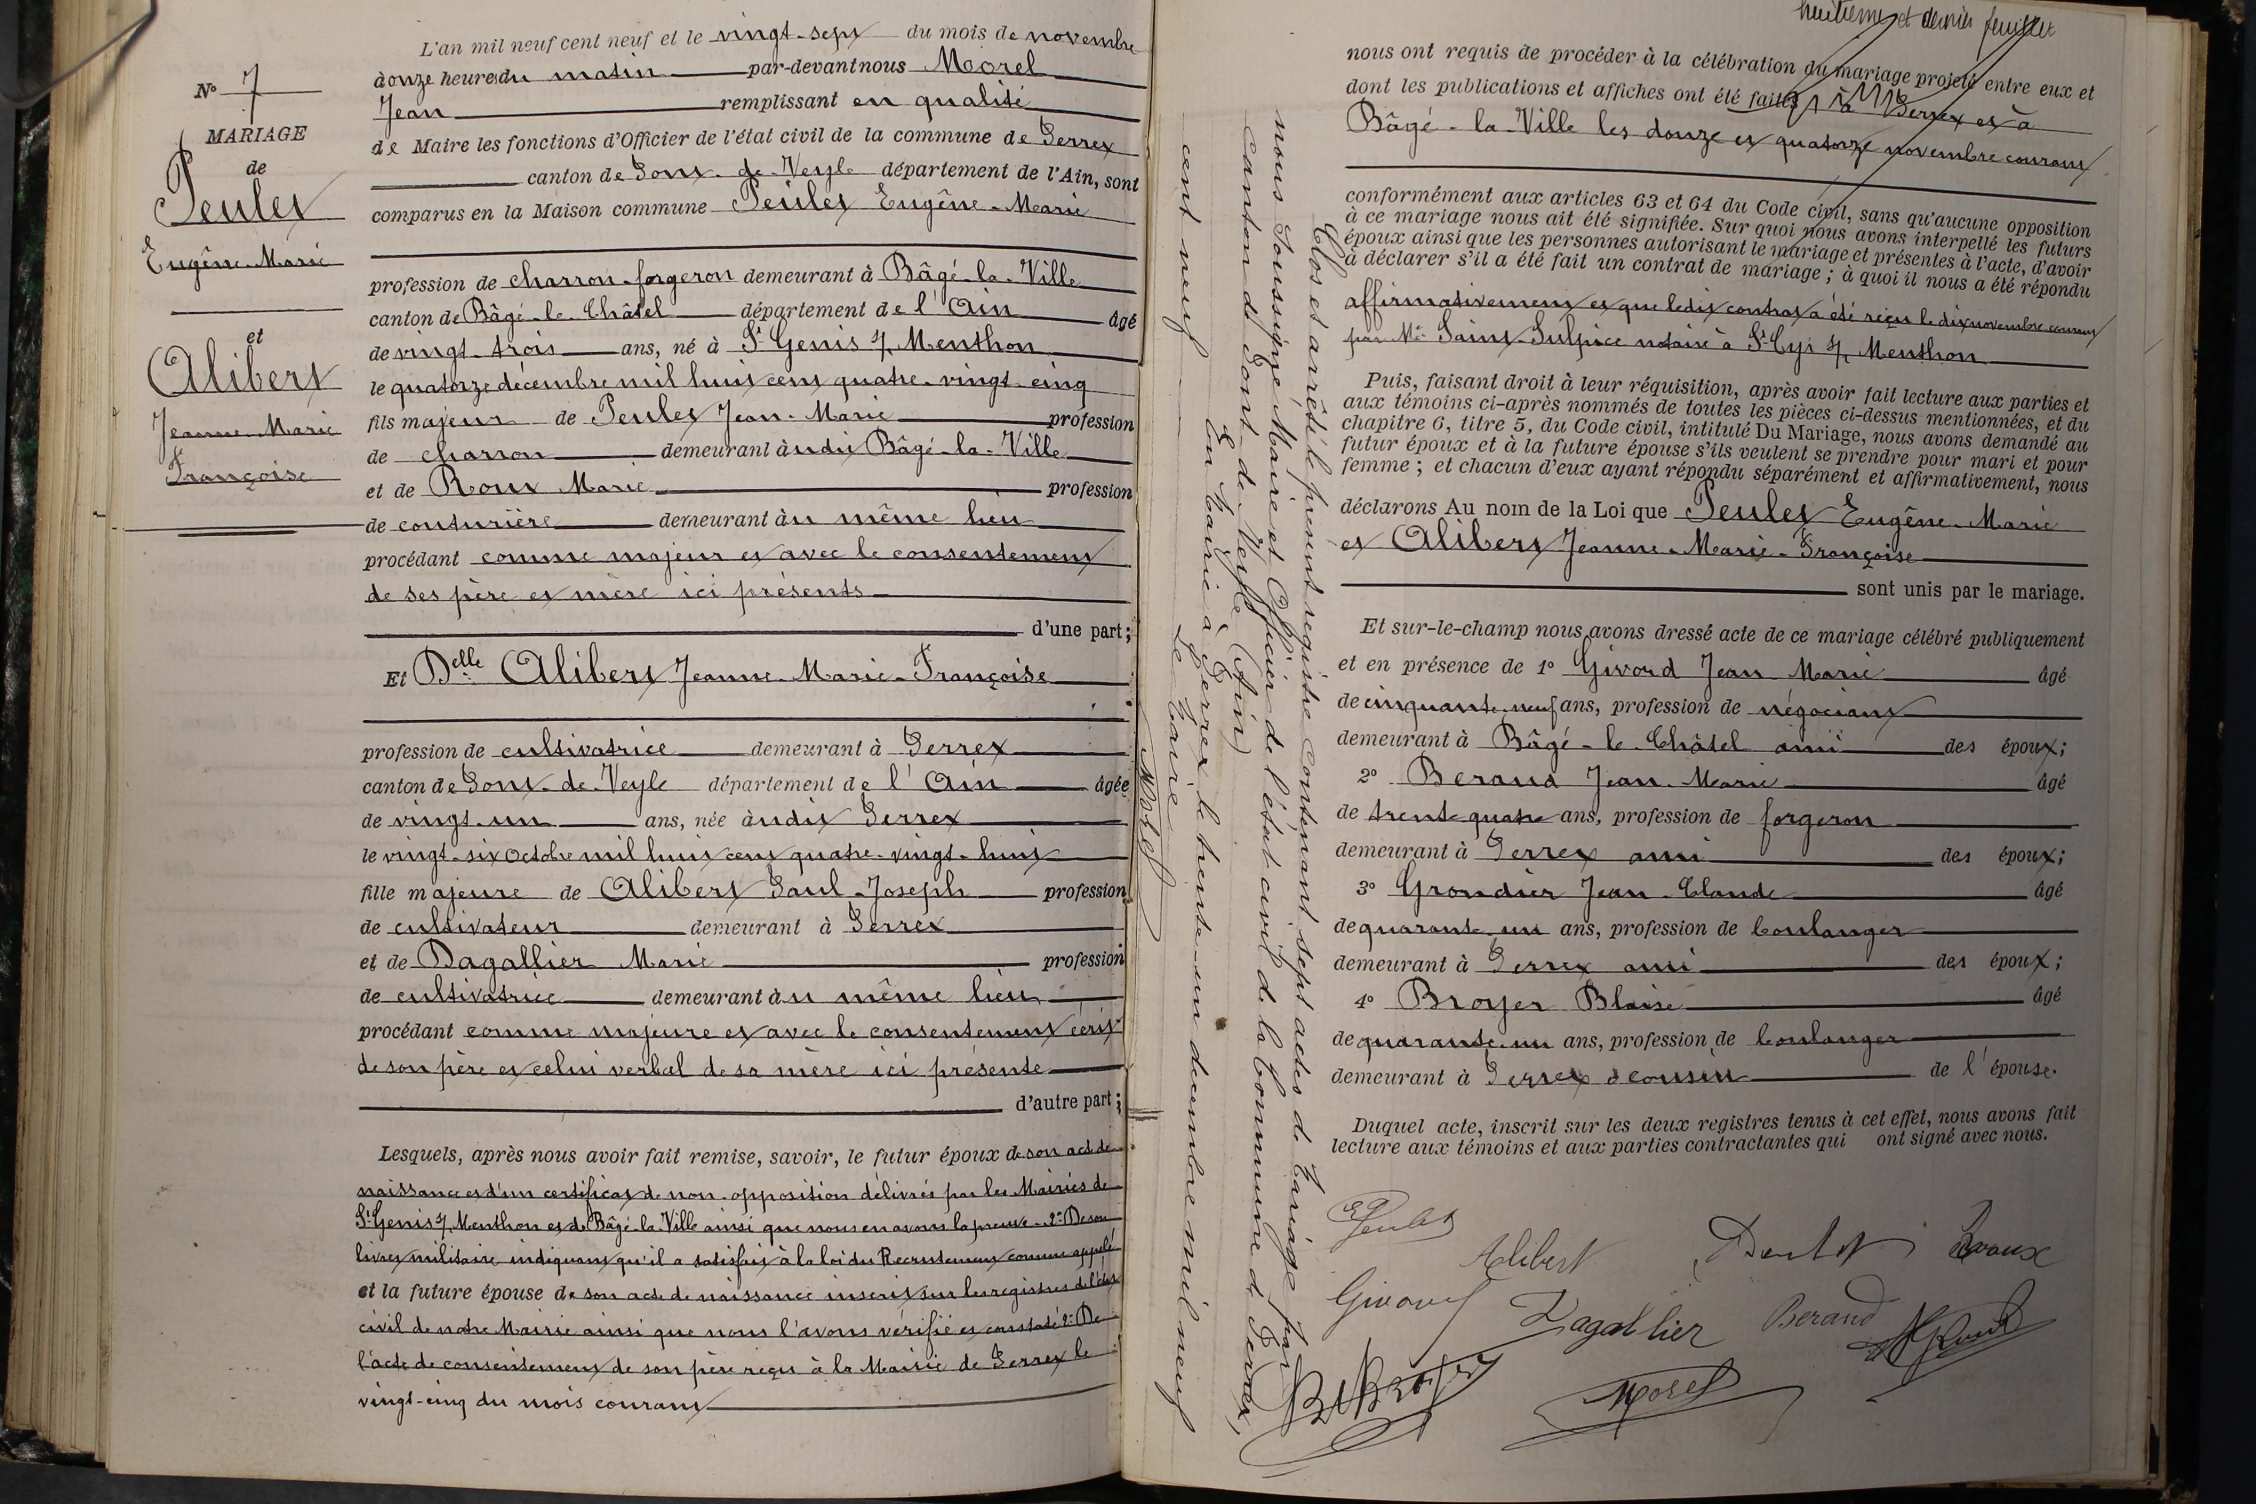 N° 7
MARIAGE
de
Peulet
Eugène-Marie
et
Alibert
Jeanne-Marie
Françoise
L'an mil neuf cent neuf et le vingt-sept du mois de novembre
à onze heures du matin par-devant nous Morel
Jean remplissant en qualité
de Maire les fonctions d'Officier de l'état civil de la commune de Perrex
canton de Pont-de-Veyle département de l'Ain, sont
comparus en la Maison commune Peulet Eugène-Marie
profession de charron-forgeron demeurant à Bâgé-la-Ville
canton de Bâgé-le-Châtel département de l'Ain âgé
de vingt-trois ans, né à St Genis s/ Menthon
le quatorze décembre mil huit cent quatre-vingt-cinq
fils majeur de Peulet Jean-Marie profession
de charron demeurant à udit Bâgé-la-Ville
et de Roux Marie profession
de couturière demeurant à u même lieu
procédant comme majeur et avec le consentement
de ses père et mère ici présents
d'une part;
Et Delle Alibert Jeanne-Marie-Françoise
profession de cultivatrice demeurant à Perrex
canton de Pont-de-Veyle département de l'Ain âgée
de vingt-un ans, née à udit Perrex
le vingt-six octobre mil huit cent quatre-vingt-huit
fille majeure de Alibert Paul-Joseph profession
de cultivateur demeurant à Perrex
et de Dagallier Marie profession
de cultivatrice demeurant à u même lieu
procédant comme majeure et avec le consentement écrit
de son père et celui verbal de sa mère ici présente
d'autre part;
Lesquels, après nous avoir fait remise, savoir, le futur époux de son acte de
naissance et d'un certificat de non-opposition délivrés par les Mairies de
St Genis s/ Menthon et de Bâgé-la-Ville ainsi que nous en avons la preuve - 2° De son
livret militaire indiquant qu'il a satisfait à la loi du Recrutement comme appelé
et la future épouse de son acte de naissance inscrit sur les registres de l'état
civil de notre Mairie ainsi que nous l'avons vérifié et constaté 2° De
l'acte de consentement de son père reçu à la Mairie de Perrex le
vingt-cinq du mois courant
huitième et dernier feuillet
nous ont requis de procéder à la célébration du mariage projeté entre eux et
dont les publications et affiches ont été faites à Perrex et à
Bâgé-la-Ville les douze et quatorze novembre courant
conformément aux articles 63 et 64 du Code civil, sans qu'aucune opposition
à ce mariage nous ait été signifiée. Sur quoi nous avons interpellé les futurs
époux ainsi que les personnes autorisant le mariage et présentes à l'acte, d'avoir
à déclarer s'il a été fait un contrat de mariage; à quoi il nous a été répondu
affirmativement et que ledit contrat a été reçu le dix novembre courant
par Me Saint-Sulpice notaire à St Cyr s/ Menthon
Puis, faisant droit à leur réquisition, après avoir fait lecture aux parties et
aux témoins ci-après nommés de toutes les pièces ci-dessus mentionnées, et du
chapitre 6, titre 5, du Code civil, intitulé Du Mariage, nous avons demandé au
futur époux et à la future épouse s'ils veulent se prendre pour mari et pour
femme; et chacun d'eux ayant répondu séparément et affirmativement, nous
déclarons Au nom de la Loi que Peulet Eugène-Marie
et Alibert Jeanne-Marie-Françoise
sont unis par le mariage.
Et sur-le-champ nous avons dressé acte de ce mariage célébré publiquement
et en présence de 1° Givord Jean Marie âgé
de cinquante-neuf ans, profession de négociant
demeurant à Bâgé-le-Châtel ami des époux;
2° Beraud Jean-Marie âgé
de trente-quatre ans, profession de forgeron
demeurant à Perrex ami des époux;
3° Grondier Jean-Claude âgé
de quarante-un ans, profession de boulanger
demeurant à Perrex ami des époux;
4° Broyer Blaise âgé
de quarante-un ans, profession de boulanger
demeurant à Perrex cousin de l'épouse.
Duquel acte, inscrit sur les deux registres tenus à cet effet, nous avons fait
lecture aux témoins et aux parties contractantes qui ont signé avec nous.
Peulet
Alibert
Peulet
Roux
Givord
Dagallier
Beraud
B Broyer
Morel
Clos et arrêté le présent registre contenant sept actes de Mariage par
nous soussigné Maire et Officier de l'état civil de la Commune de Perrex,
Canton de Pont-de-Veyle (Ain)
En Mairie à Perrex, le trente-un décembre mil neuf
cent neuf
Le Maire
Morel